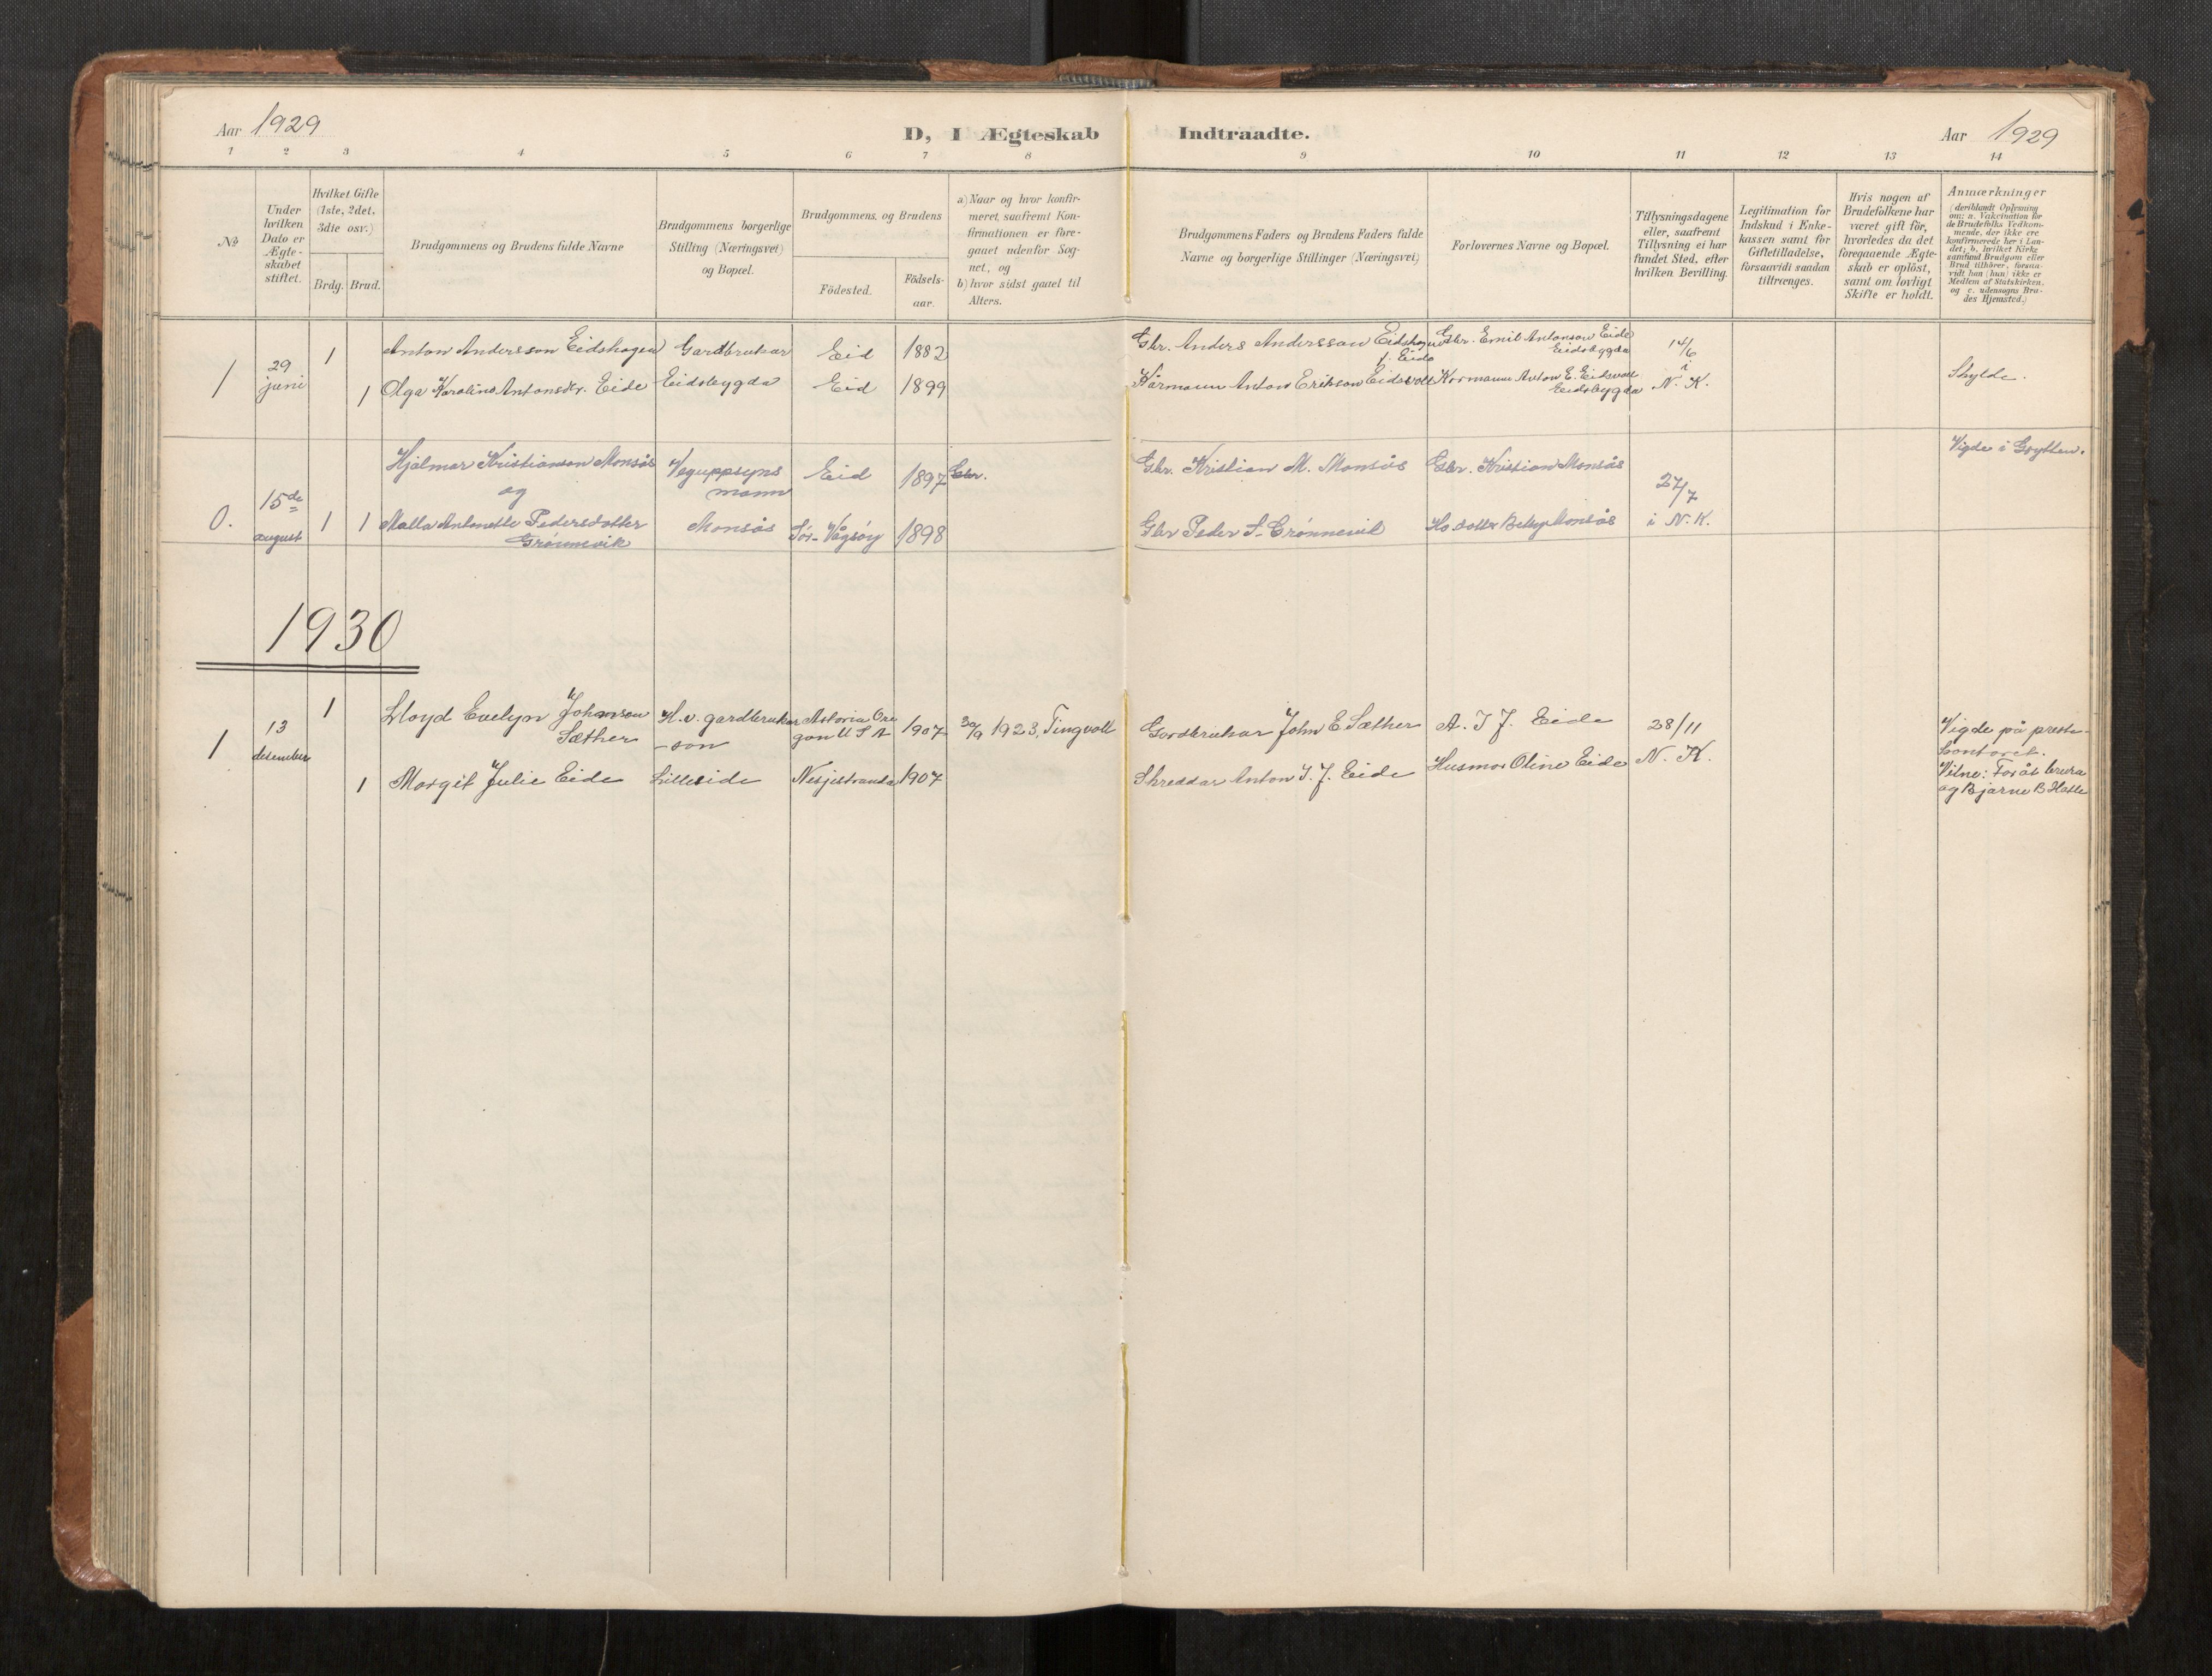 Aar 1929
D, I Ægteskab Indtraadte.
Aar 1929
1 2 3 4 5 6 7 8 9 10 11 12 13 14
No
Under
hvilken
Dato er
Ægte-
skabet
stiftet.
Hvilket Gifte
(1ste, 2det,
3die osv.)
Brdg. Brud.
Brudgommens og Brudens fulde Navne
Brudgommens borgerlige
Stilling (Næringsvei)
og Bopæl.
Brudgommens og Brudens
Födested.
Födsels-
aar.
a) Naar og hvor konfir-
meret, saafremt Kon-
firmationen er fore-
gaaet udenfor Sog-
net, og
b) hvor sidst gaaet til
Alters.
Brudgommens Faders og Brudens Faders fulde
Navne og borgerlige Stillinger (Næringsvei)
Forlovernes Navne og Bopæl.
Tillysningsdagene
eller, saafremt
Tillysning ei har
fundet Sted, efter
hvilken Bevilling.
Legitimation for
Indskud i Enke-
kassen samt for
Giftetilladelse,
forsaavidt saadan
tiltrænges.
Hvis nogen af
Brudefolkene har
været gift för,
hvorledes da det
foregaaende Ægte-
skab er oplöst,
samt om lovligt
Skifte er holdt.
Anmærkninger
(deriblandt Oplysning
om: a. Vakcination for
de Brudefolks Vedkom-
mende, der ikke ere
konfirmerede her i Lan-
det; b. hvilket Kirke
samfund Brudgom eller
Brud tilhörer, forsaa-
vidt han (hun) ikke er
Medlem af Statskirken.
og c. udensogns Bru-
des Hjemsted.)
1
29
juni
1
Anton Andersson Eidshagen
Gardbrukar
Eid
1882
Gbr. Anders Andersson Eidshagen
f. Eide
Gbr. Emil Antonson Eide
Eidsbygda
14/6
i
N. K.
Skylde.
1
Olga Karoline Antonsdtr. Eide
Eidsbygda
Eid
1899
Kårmann Anton Erikson Eidsvoll
Kormann Anton E. Eidsvoll
Eidsbygda
0.
15de
august
1 1
Hjalmar Kristianson Monsås
og
Malla Antonette Pedersdotter
Grönnevik
Veguppsyns
mann
Monsås
Eid
1897
Gbr.
Sör-Vågsöy
1898
Gbr. Kristian M. Monsås
Gbr Peder A. Grönnevik
Gbr. Kristian Monsås
Ho dotter Betsy Monsås
27/7
i N. K.
Vigde i Grytten.
1930
1
13
desember
1
Lloyd Evelyn Johnson
Sæther
H.v. gardbrukar
-son
Astoria Ore
gon U S A
1907
30/9 1923, Tingvoll
Gardbrukar John E Sæther
A. I J. Eide
28/11
N. K.
Vigde på preste-
kontoret.
1
Margit Julie Eide
Lilleeide
Nesjestranda
1907
Skreddar Anton I. J. Eide
Husmor Oline Eide
Vitne:
og Bjarne B Hatle